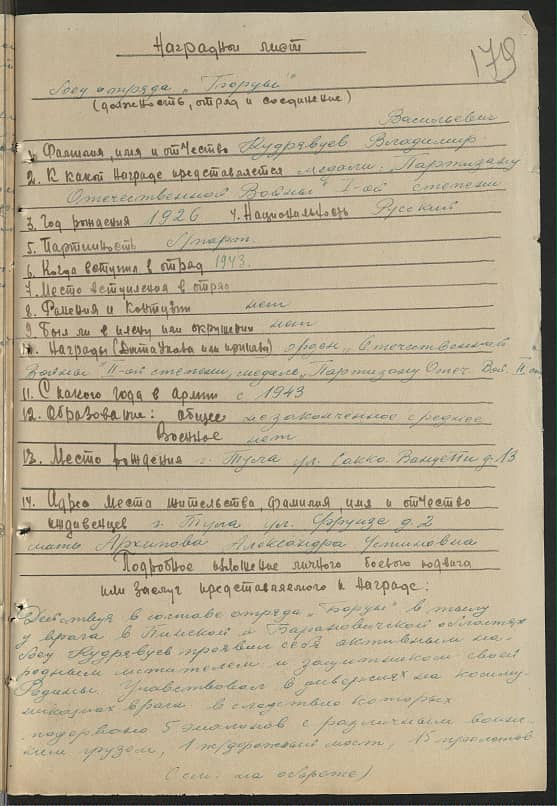 Наградной лист
179
Боец отряда „Боруы"
(должность, отряд и соединение)
Васильевич
1. Фамилия, имя и отчество Кудрявцев Владимир
2. К какой награде представляется медали: „Партизану
Отечественной Войны" I-ой степени
3. Год рождения 1926 4. Национальность Русский
5. Партийность б/парт.
6. Когда вступил в отряд 1943.
7. Место вступления в отряд
8. Ранения и контузии нет
9. Был ли в плену или окружении нет
10. Награды (Дата указа или приказа) орден „Отечественной
Войны" II-ой степени, медаль „Партизану Отеч. Вой. II ст.
11. С какого года в армии с 1943
12. Образование: общее незаконченное среднее
Военное нет
13. Место рождения г. Тула ул. Сакко Ванцетти д. 13
14. Адрес места жительства, фамилия имя и отчество
иждивенцев г. Тула ул. Фрунзе д. 2
мать Архипова Александра Устиновна
Подробное изложение личного боевого подвига
или заслуг представляемого к награде:
Действуя в составе отряда в тылу
у врага в Пинской и Барановичской областях
боец Кудрявцев проявил себя активным на-
родным мстителем и защитником своей
Родины. Участвовал в диверсиях на комму-
никациях врага в следствие которых
подорвано 5 эшелонов с различным воинс-
ким грузом, 1 ж/дорожный мост, 15 пролетов
(см. на обороте)